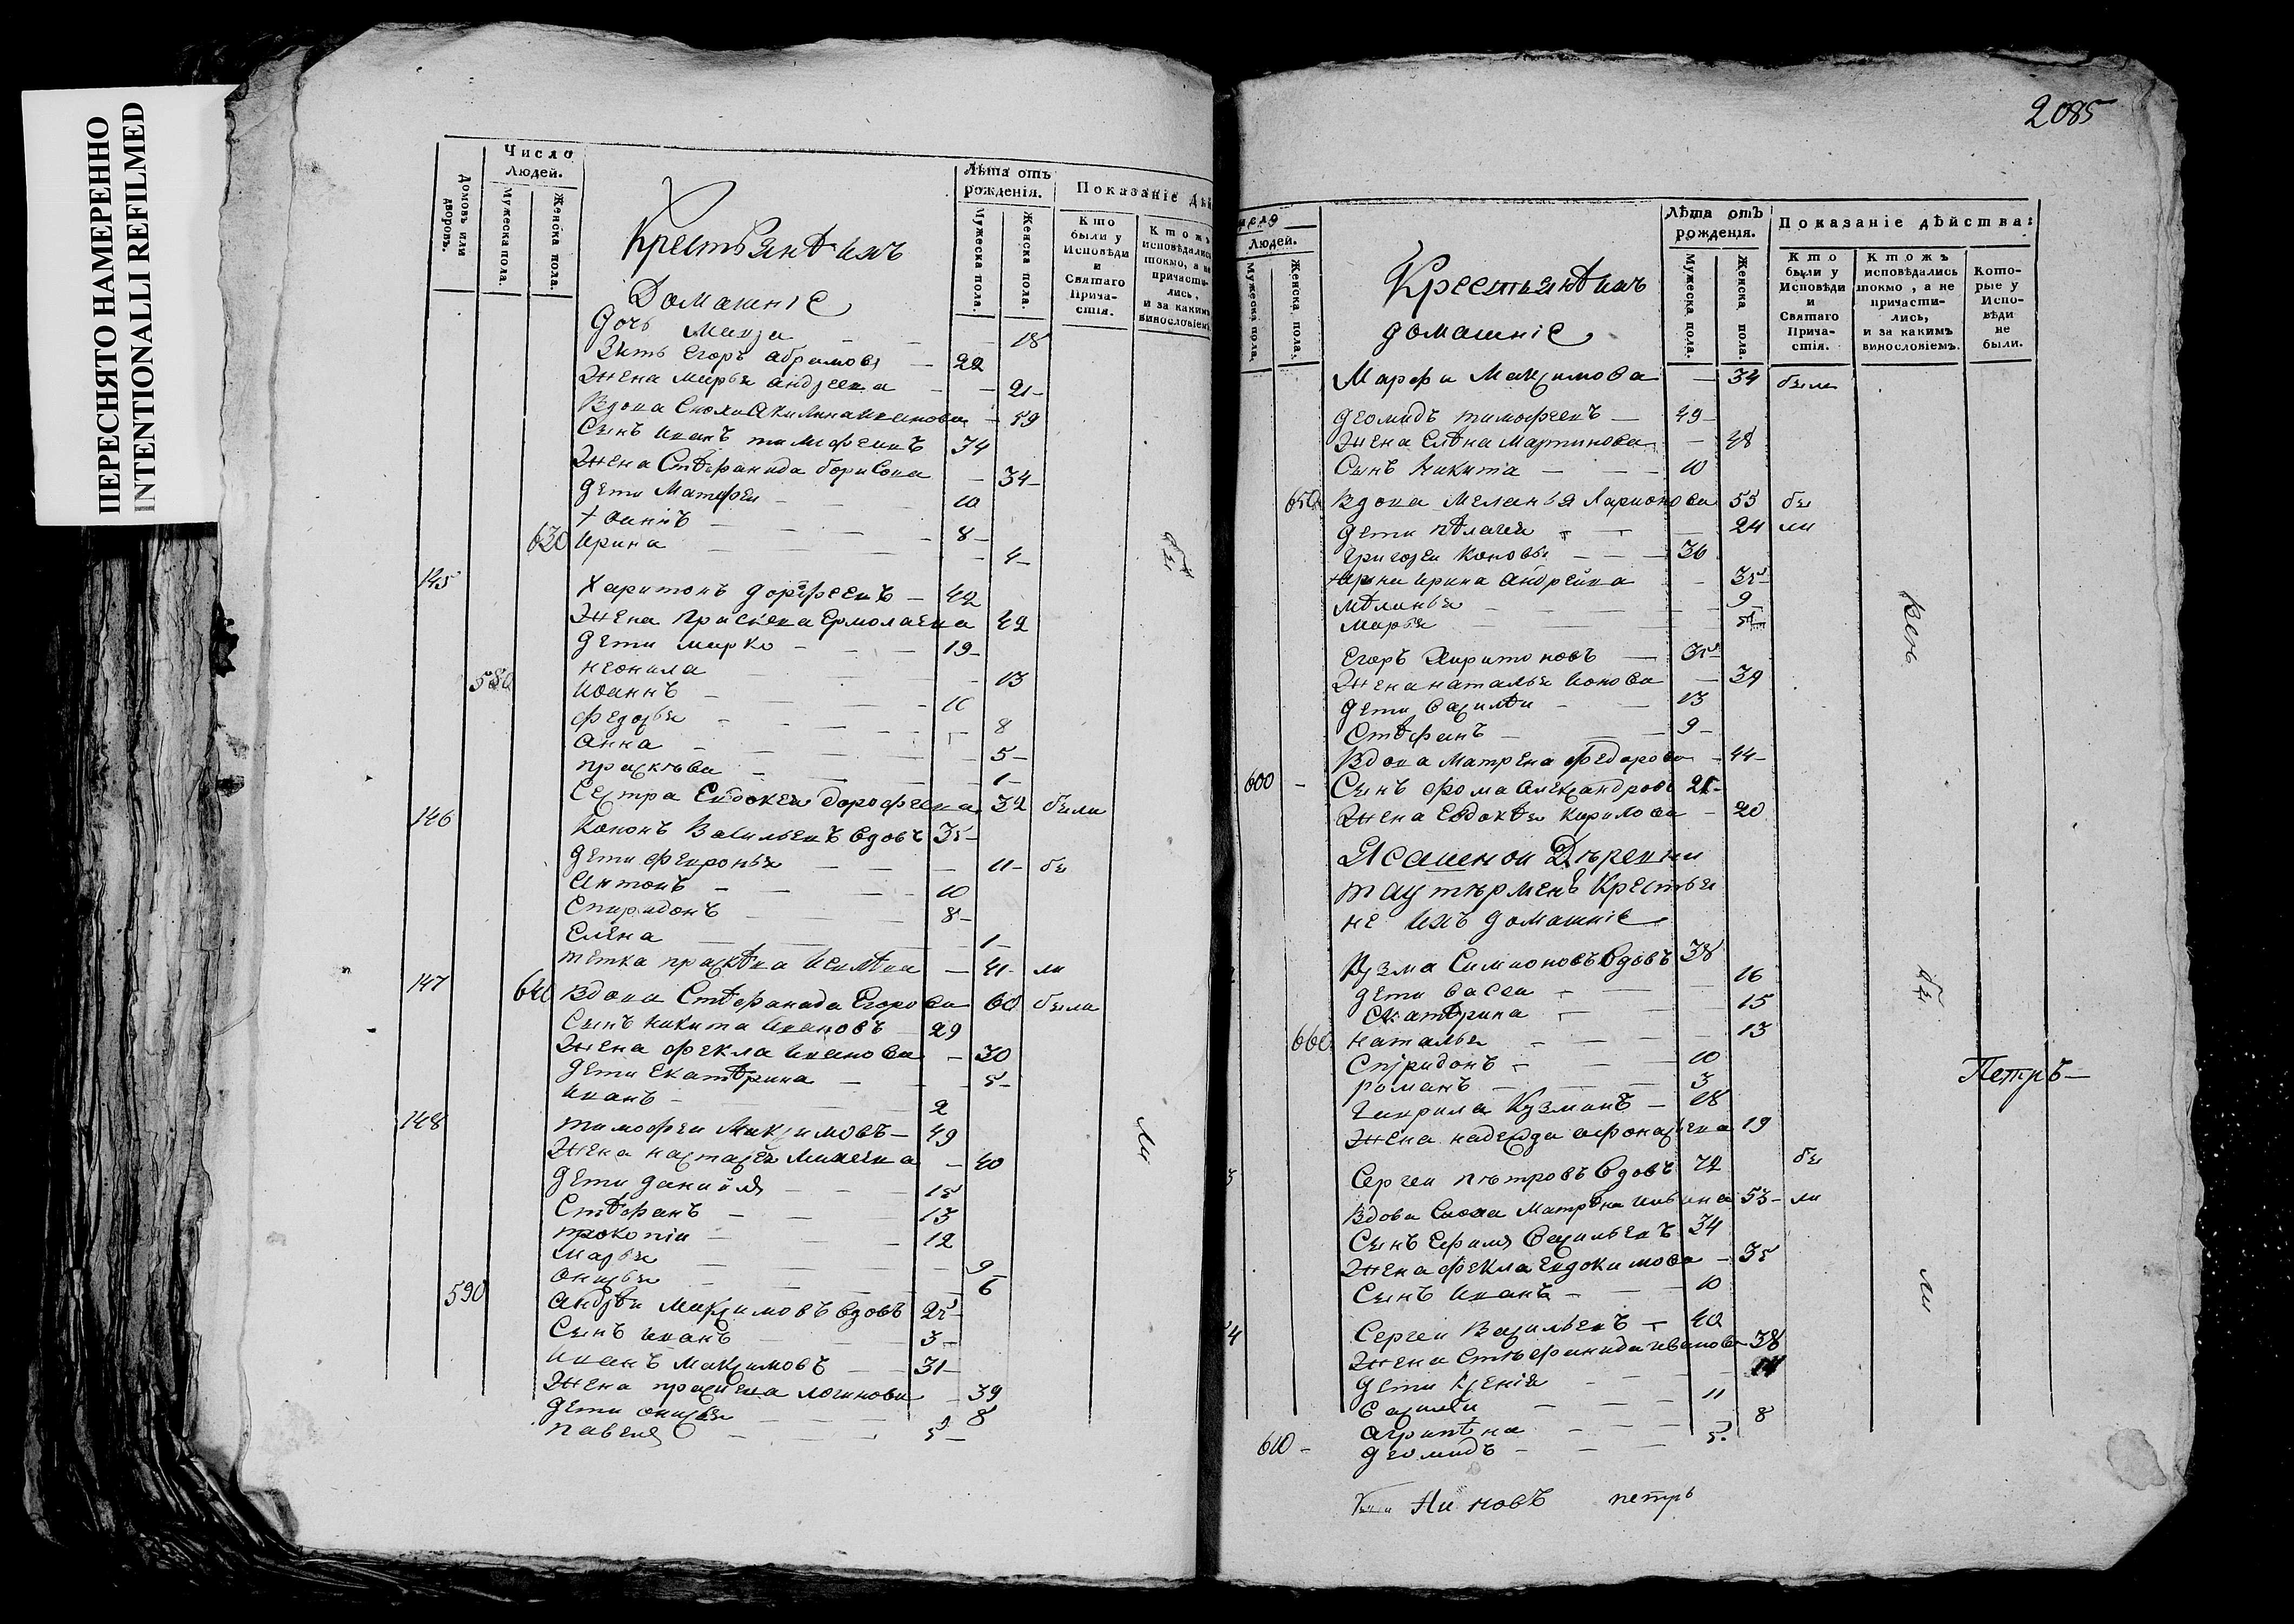 ПЕРЕСНЯТО НАМЕРЕННО
INTENTIONALLI REFILMED
Домовъ или дворовъ.
Число Людей.
Мужеска пола.
Женска пола.
Крестьянѣ ихъ
Домашніе
Лѣта отъ рожденія.
Мужеска пола.
Женска пола.
Показаніе дѣй
Кто были у Исповѣди и Святаго Причастія.
Ктожъ исповѣдались токмо, а не причастились, и за какимъ винословіемъ.
Дочь 18
Зять Егоръ Абрамовъ — 22
Жена Марья Андреева — 21
Вдова Сноха Акилина Иванова — 59
Сынъ Иванъ Тимофеевъ 34
Жена Стѣфанида Борисова — 34
Дети Матфеи — 10
Іоаннъ — 8
630 Ирина — 4
145 Харитонъ Дорофеевъ — 42
Жена Прасковья Ермолаева 42
Дети Марко — 19
Неонила — 13
580 Иоаннъ — 10
Федосья — 8
Анна — 5
Прасковья — 1
Сестра Евдокея Дорофеева 32 были
146 Кононъ Васильевъ вдовъ 35
Дети Февронья — 11 бы
Антонъ — 10
Спиридонъ — 8
Елена — 1
Тетка — 41 ли
147 640 Вдова Стѣфанида Егорова 60 была
Сынъ Никита Ивановъ 29
Жена Фекла Иванова — 30
Дети Екатѣрина — 5
Иванъ — 2
148 Тимофеи Максимовъ — 49
Жена Настасья — 40
Дети Данийлъ — 15
Стѣфанъ — 13
Прокопіи — 12
Марья — 9
Онисья — 6
590 Андрѣи Максимовъ вдовъ 25
Сынъ Иванъ — 3
Иванъ Максимовъ — 31
Жена Логинова — 39
Дети Онисья — 8
Павелъ — 5
бы
ли
2085
Число Людей.
Мужеска пола.
Женска пола.
Крестьянѣ ихъ
домашніе
Лѣта отъ рожденія.
Мужеска пола.
Женска пола.
Показаніе дѣйства:
Кто были у Исповѣди и Святаго Причастія.
Ктожъ исповѣдались токмо, а не причастились, и за какимъ винословіемъ.
Которые у Исповѣди не были.
Марфа Максимова — 34 были
Деомидъ Тимофеевъ — 49
Жена Елѣна Мартинова — 48
Сынъ Никита — 10
650 Вдова Меланья Ларионова 55 бы
Дети Пѣлагея — 24 ли
Григореи Коновъ — 36
Ирина Андреева — 35
Мѣланья — 9
Марья — 5
Егоръ Харитоновъ — 35
Жена Наталья Ионова — 39
Дети Василѣи — 13
Стѣфанъ — 9
Вдова Матрена Федорова — 44
600 — Сынъ Фома Александровъ 21
Жена Евдокѣя Карпова — 20
Ясашной Деревни
Таутермень Крестья
не ихъ домашніе
Кузма Симионовъ вдовъ 38
Дети Васса — 16
Екатѣрина — 15
660 Наталья — 13
Спиридонъ — 10
Романъ — 3
Гаврила Кузминъ — 28
Жена Надежда Афонасьева 19
Сергеи Петровъ вдовъ 72 бы
Вдова Сноха Матрѣна Ильина 53 — ли
Сынъ Ефимъ Васильевъ 34
Жена Фекла Евдокимова — 35
Сынъ Иванъ — 10
Сергеи Васильевъ — 40
Жена Стефанида Иванова 38
Дети Ксенія — 14
Василѣи — 11
Агрипѣна — 8
610 — Деомидъ — 5
бы
ли
Петръ —
новъ петръ